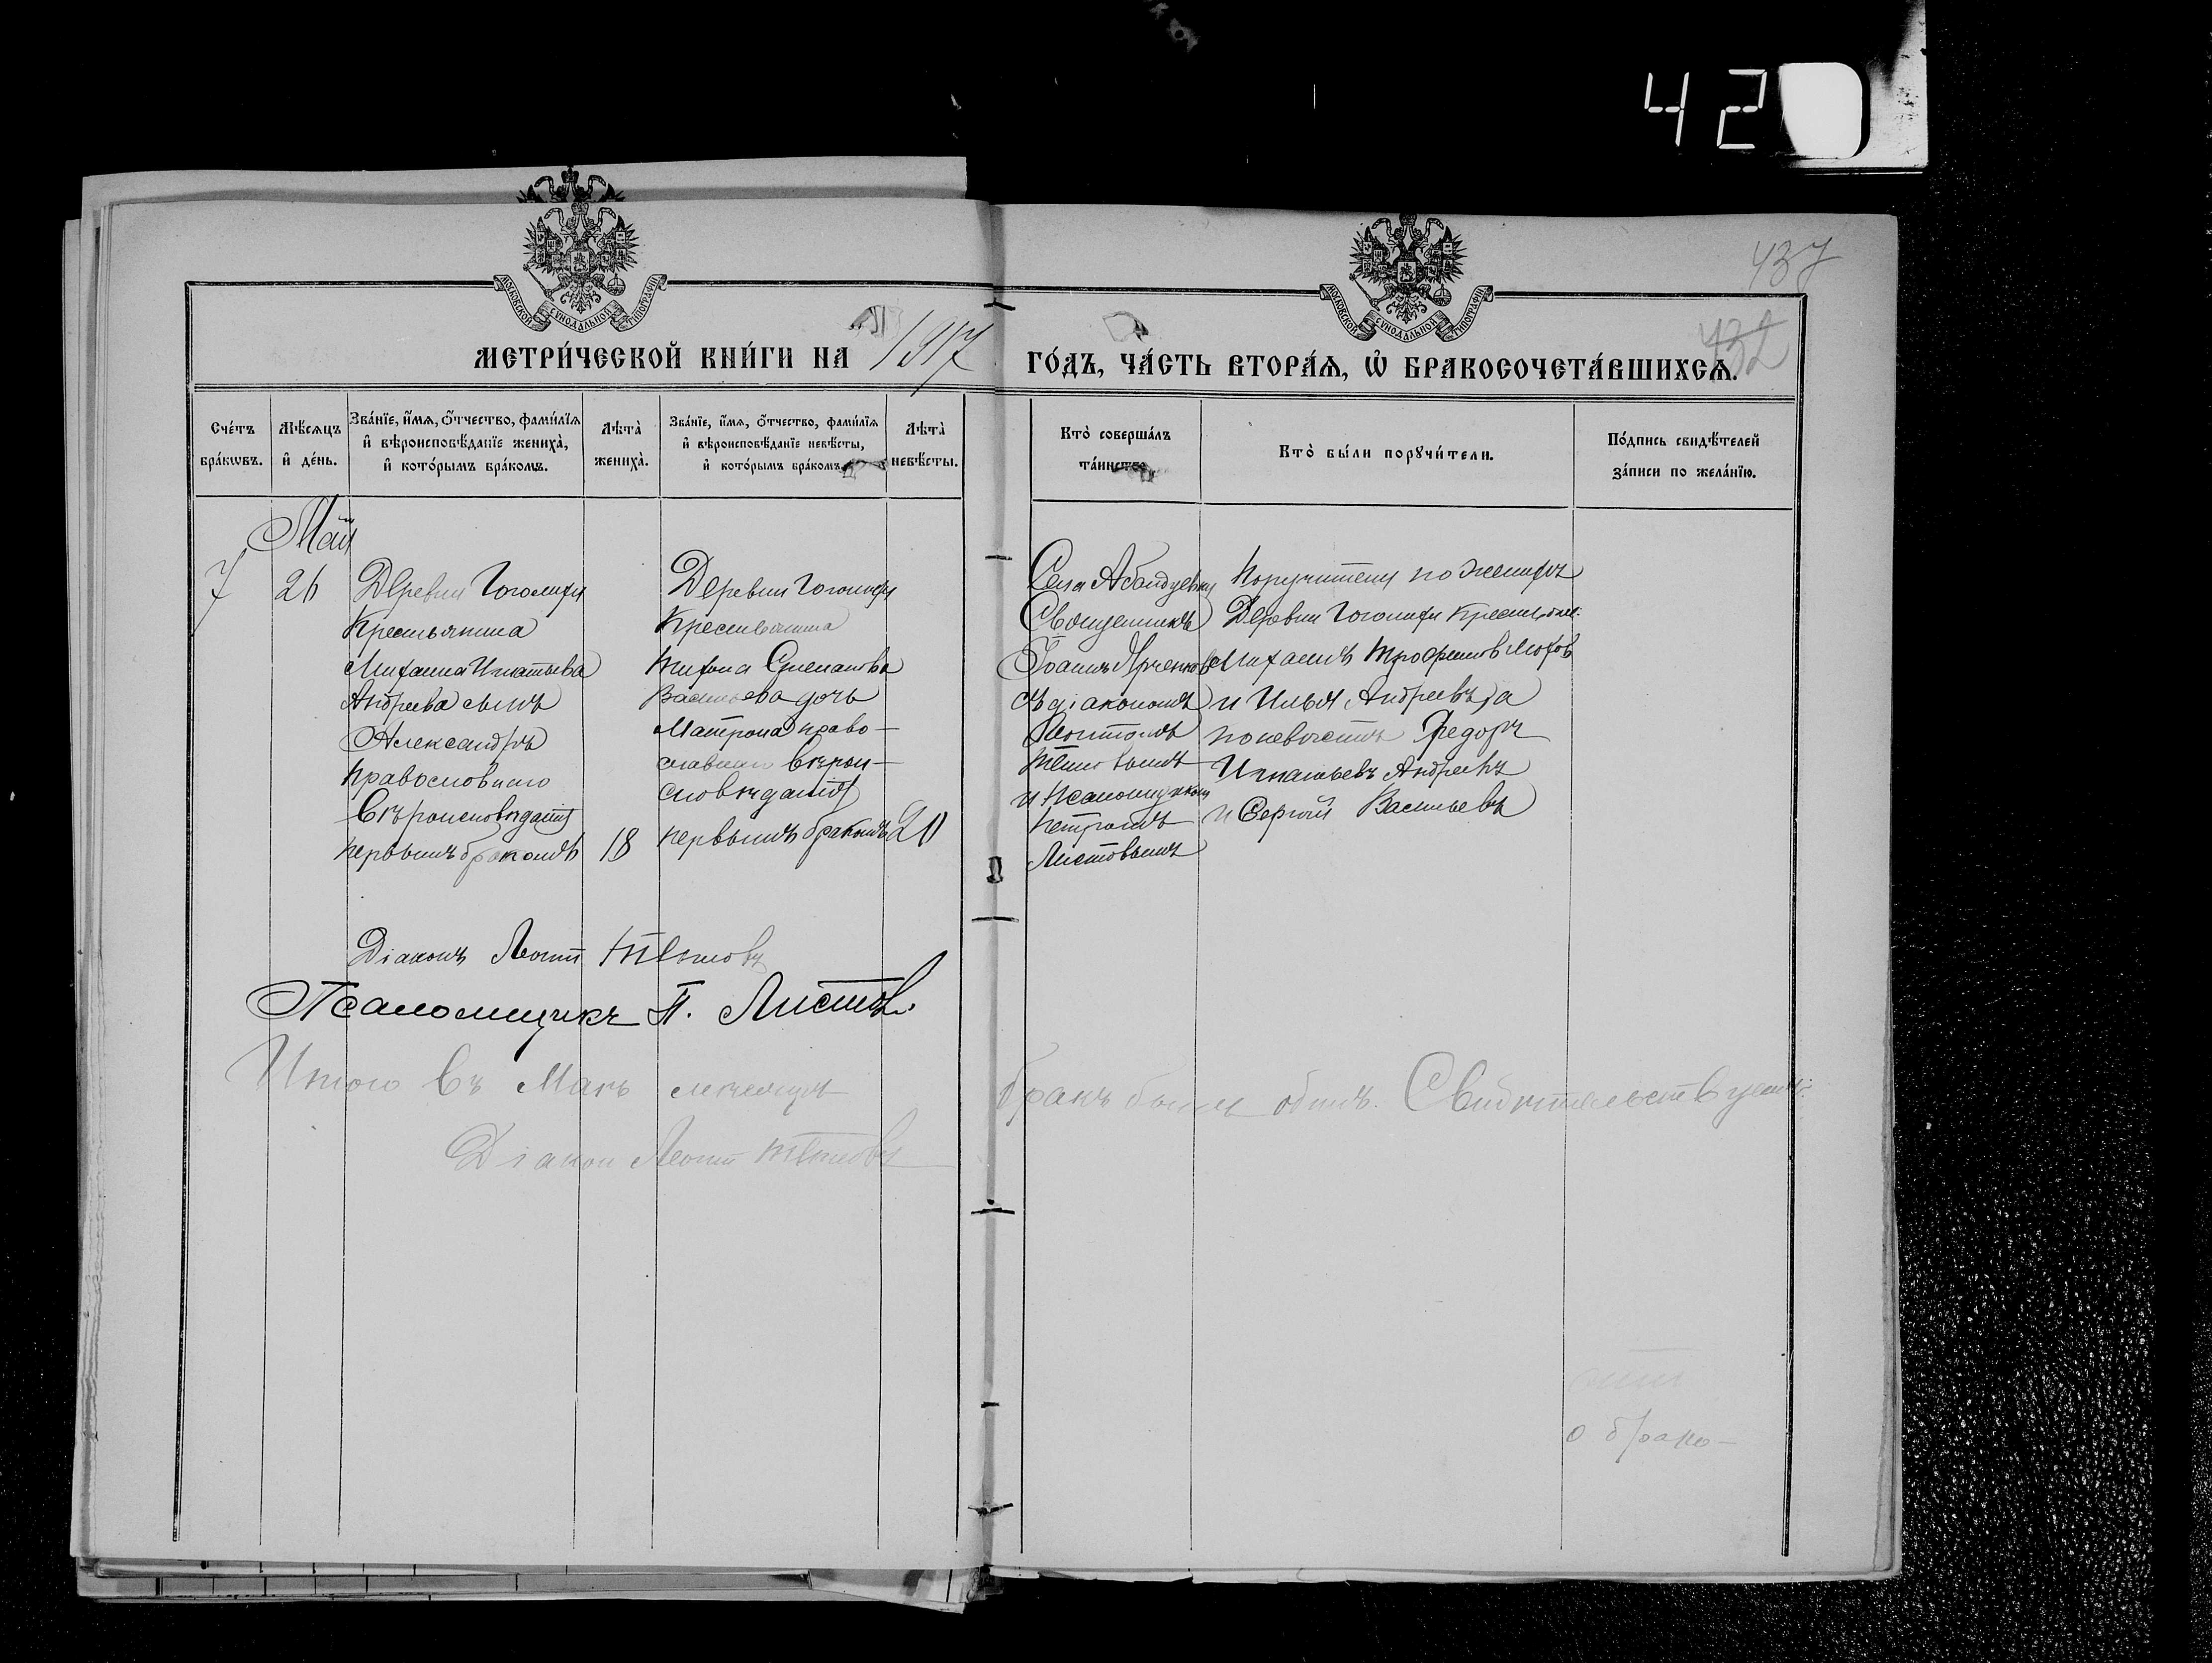 420
МОСКОВСКОЙ СѴНОДАЛЬНОЙ ТИПОГРАФІИ
МОСКОВСКОЙ СѴНОДАЛЬНОЙ ТИПОГРАФІИ
437
432
МЕТРИ́ЧЕСКОЙ КНИ́ГИ НА 1917 ГО́ДЪ, ЧА́СТЬ ВТОРА́Ѧ, Ѡ҆ БРАКОСОЧЕТА́ВШИХСѦ.
Сче́тъ
бра́кѡвъ.
Мѣ́сѧцъ
и҆ де́нь.
Зва́нїе, и҆́мѧ, ѻ҆́тчество, фами́лїѧ
и҆ вѣроисповѣ́данїе жениха̀,
и҆ кото́рымъ бра́комъ.
Лѣта̀
жениха̀.
Зва́нїе, и҆́мѧ, ѻ҆́тчество, фами́лїѧ
и҆ вѣроисповѣ́данїе невѣ́сты,
и҆ кото́рымъ бра́комъ
Лѣта̀
невѣ́сты.
Кто̀ соверша́лъ
та́инство
Кто̀ бы́ли порꙋчи́тели.
По́дпись свидѣ́телей
за́писи по жела́нїю.
Май
7
26
Деревни
Крестьянина
Михаила Игнатьева
Андреева сынъ
Александръ
Православнаго
Вѣроисповѣданія
первымъ бракомъ
18
Деревни
Крестьянина
Степанова
Васильева дочь
Матрона право-
славнаго вѣрои-
сповѣданія
первымъ бракомъ
20
Села
Священникъ
Іоаннъ
съ діакономъ
Леонтіемъ
и Псаломщикомъ
Петромъ
Листовымъ
Поручители по женихѣ
Деревни
Михаилъ Трофимовъ
и Илья Андреевъ, а
по невѣстѣ Федоръ
Игнатьевъ Андреевъ
и Сергій Васильевъ
Діаконъ Леонтій
Псаломщикъ П. Листовъ.
Итого въ Маѣ мѣсяцѣ бракъ былъ одинъ. Свидѣтельствуемъ:
Діаконъ Леонтій
о брако-